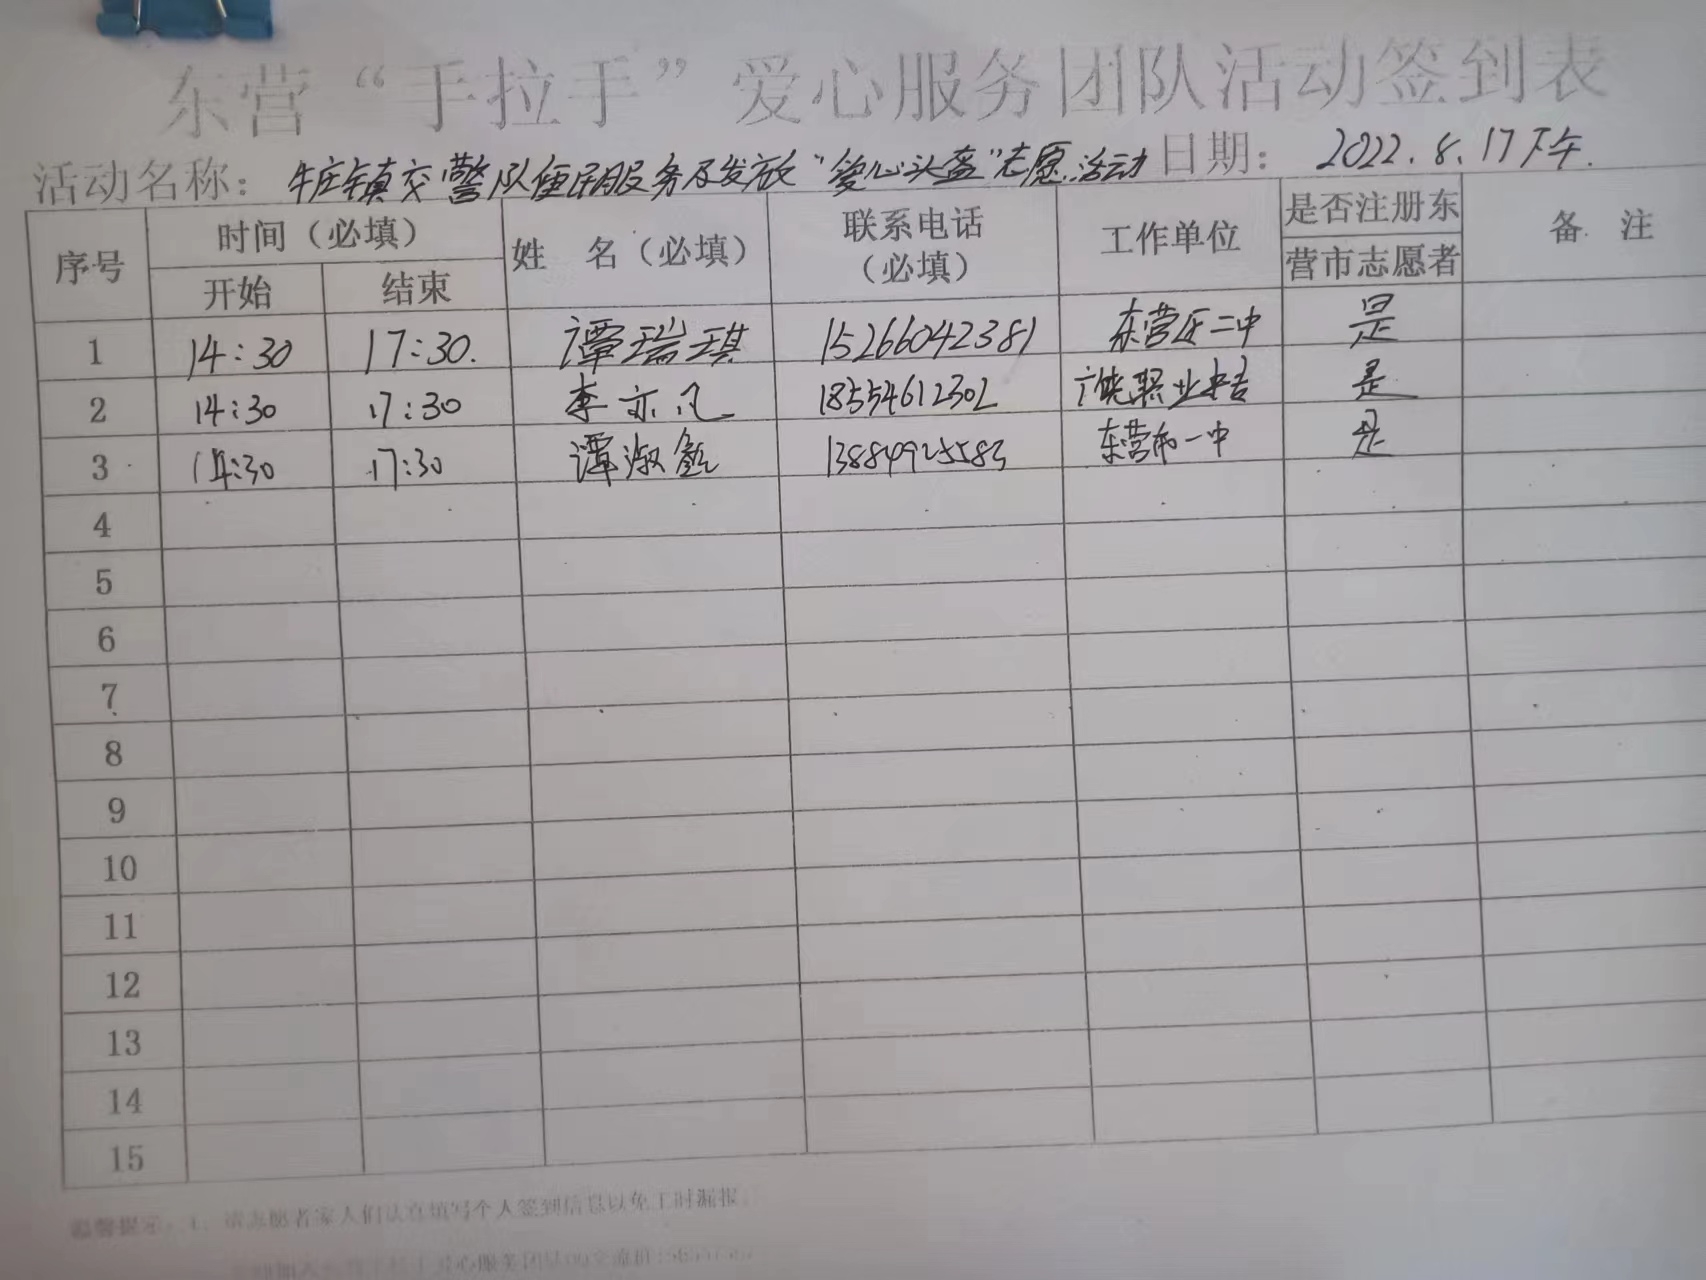 东营“手拉手”爱心服务团队活动签到表
活动名称：牛庄镇交警队便民服务及发放“爱心头盔”志愿活动 日期：2022.8.17下午.
序号 时间（必填） 姓 名（必填） 联系电话（必填） 工作单位 是否注册东营市志愿者 备 注
开始 结束
1 14:30 17:30. 谭瑞琪 15266042381 东营区二中 是
2 14:30 17:30 李亦凡 18554612302 职业 是
3 14:30 17:30 谭淑 13884925583 东营市一中 是
4
5
6
7
8
9
10
11
12
13
14
15
温馨提示：1、请志愿者家人们认真填写个人签到信息以免工时漏报
爱心服务团